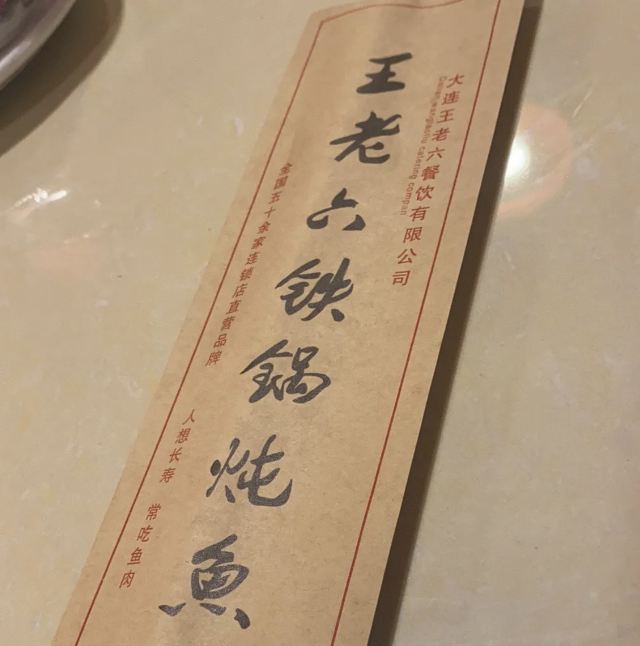 大连王老六餐饮有限公司
王老六铁锅炖鱼
全国五十余家连锁店直营品牌
人想长寿 常吃鱼肉